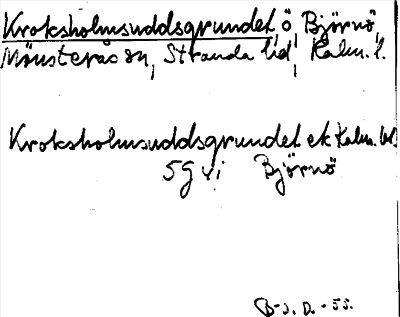 Kroksholmsuddsgrundet, ö, Björnö,
Mönsterås sn, Stranda hd, Kalm. l.
Kroksholmsuddsgrundet ek Kalm. bl.
5g vi Björnö
B-J. D. - 55.